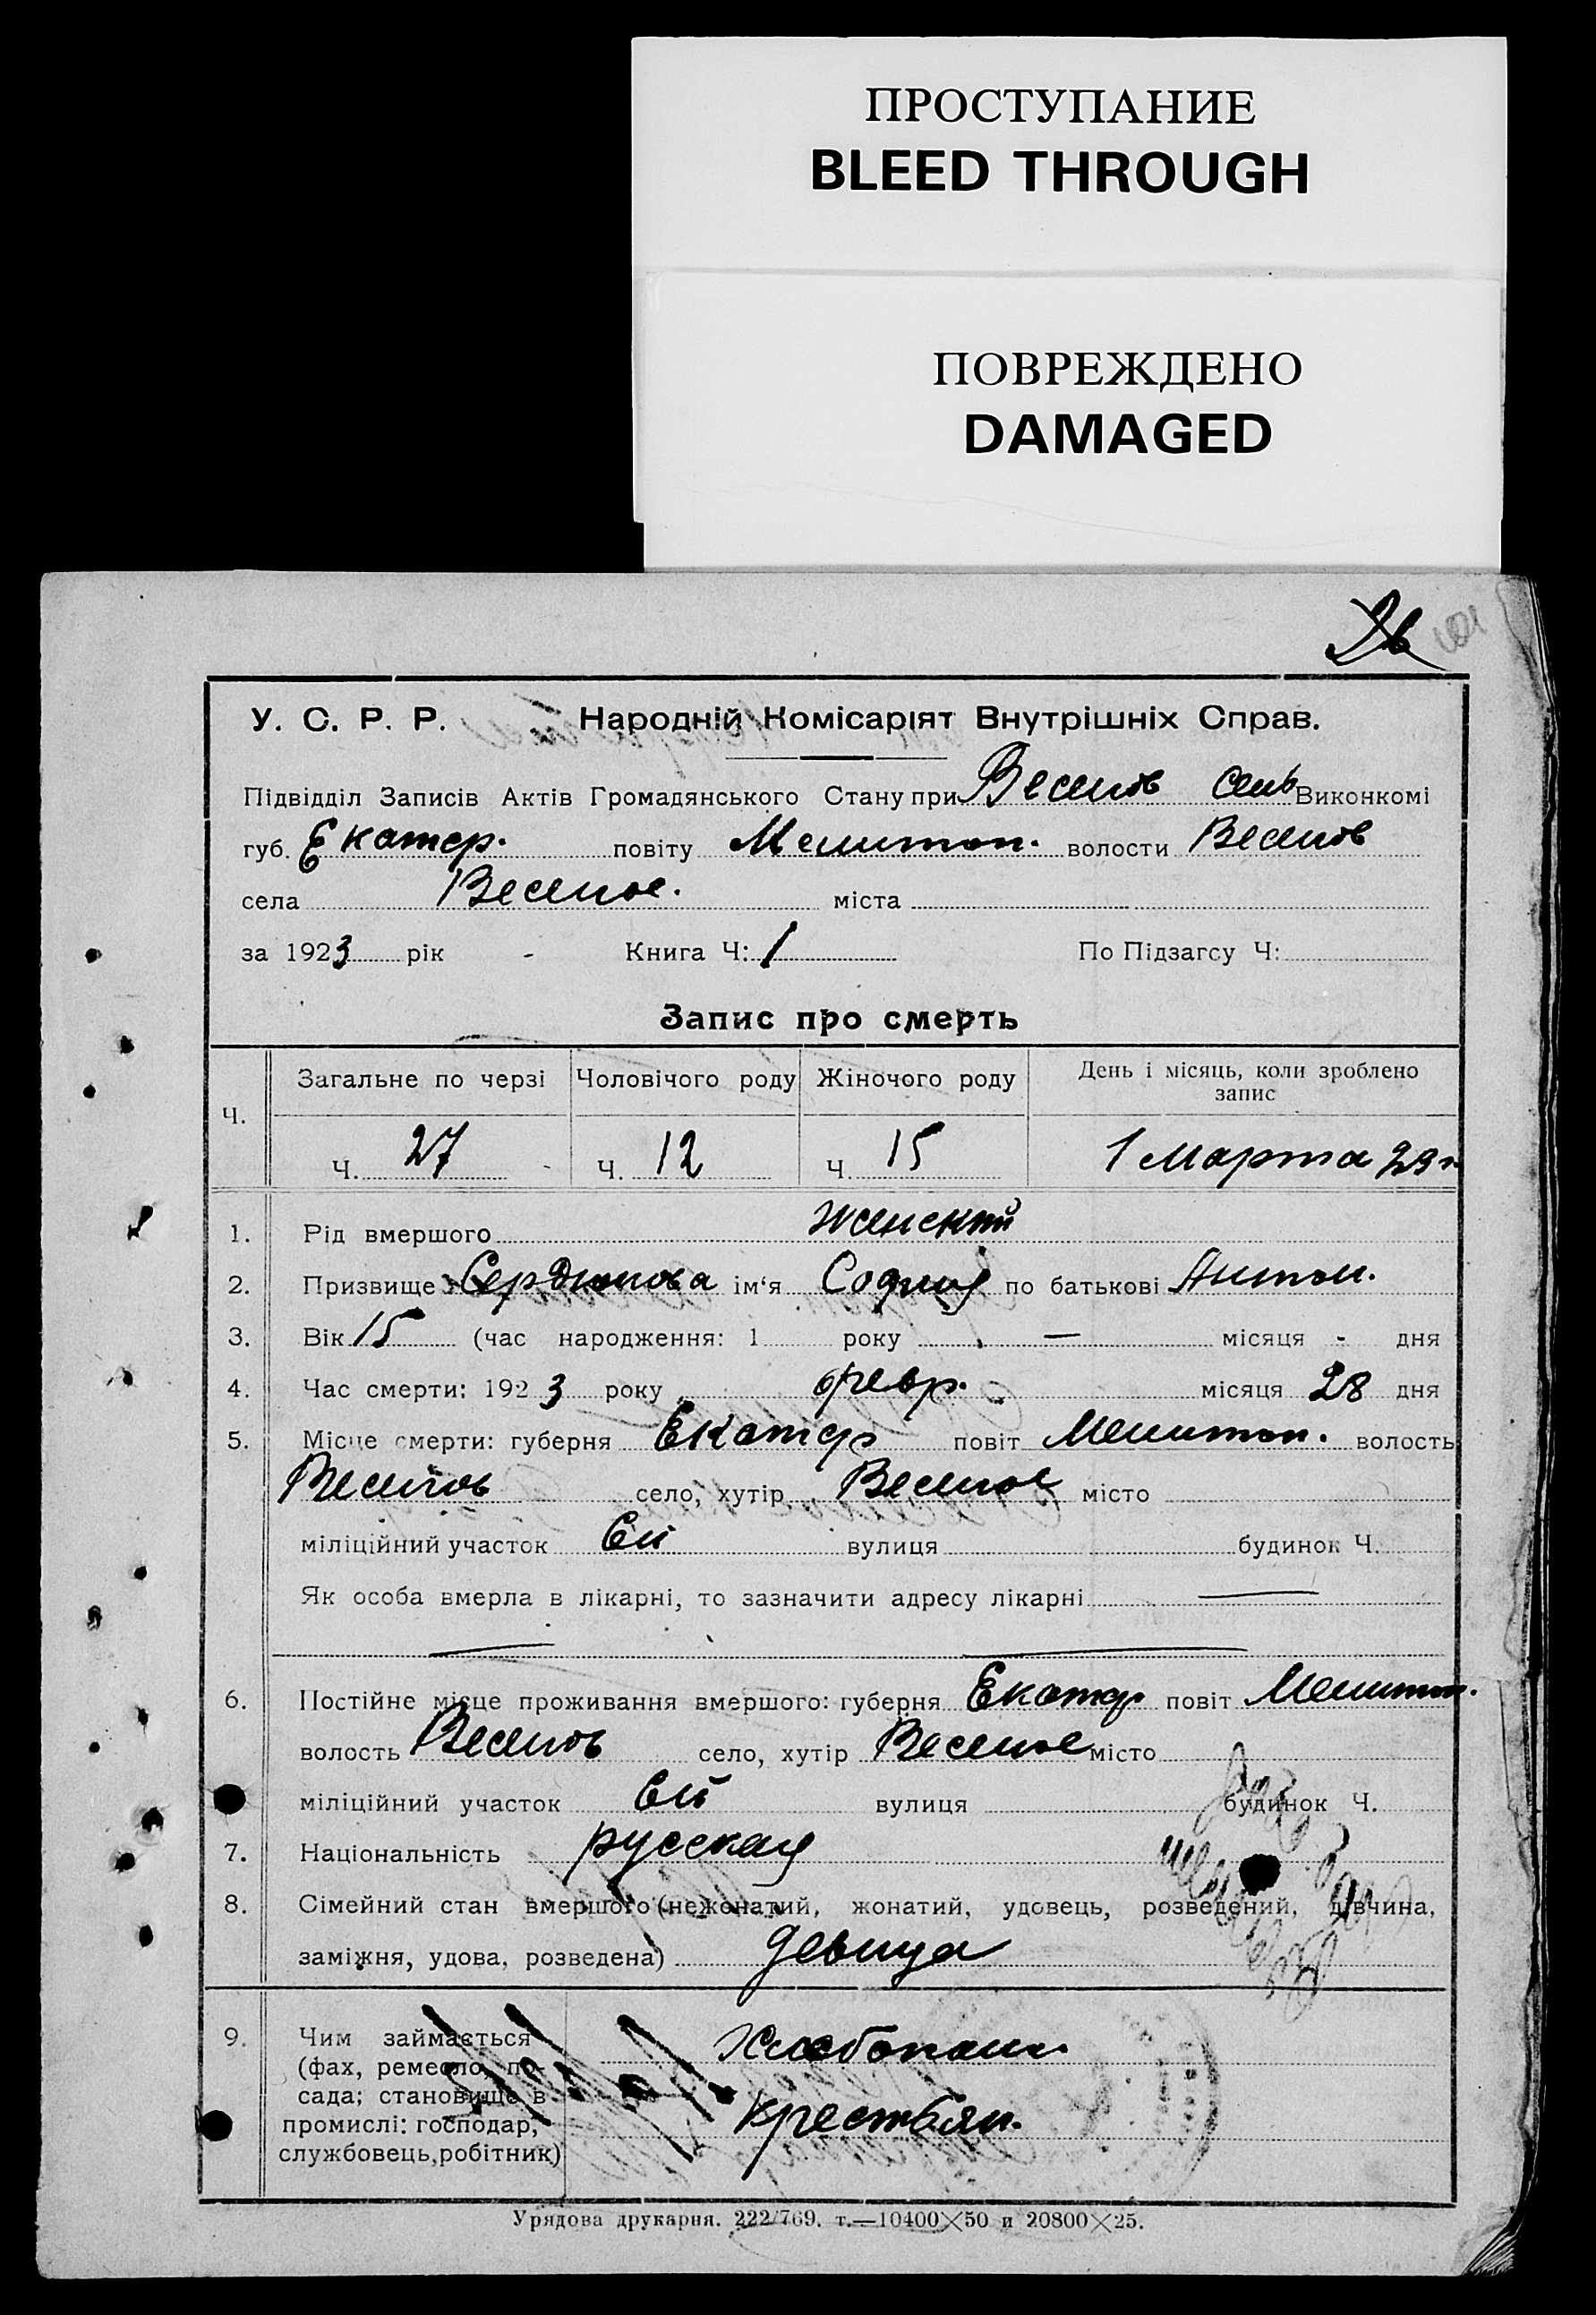 ПРОСТУПАНИЕ
BLEED THROUGH
ПОВРЕЖДЕНО
DAMAGED
26
У. С. Р. Р. Народній Комісаріят Внутрішніх Справ.
Підвідділ Записів Актів Громадянського Стану при Веселов Сель Виконкомі
губ. Екатер. повіту Мелитоп. волости Веселов
села Веселое. міста
за 1923 рік Книга Ч: 1 По Підзагсу Ч:
Запис про смерть
Ч. Загальне по черзі Чоловічого роду Жіночого роду День і місяць, коли зроблено запис
Ч. 27 Ч. 12 Ч. 15 1 Марта 23 г
1. Рід вмершого женский
2. Призвище Сердюкова ім‘я София по батькові Антон.
3. Вік 15 (час народження: 1 року — місяця - дня
4. Час смерти: 1923 року февр. місяця 28 дня
5. Місце смерти: губерня Екатер повіт Мелитоп. волость
Веселов село, хутір Веселое місто
міліційний участок 6й вулиця будинок Ч.
Як особа вмерла в лікарні, то зазначити адресу лікарні —
6. Постійне місце проживання вмершого: губерня Екатер повіт Мелитоп.
волость Веселов село, хутір Веселое місто
міліційний участок 6й вулиця будинок Ч.
7. Національність русская
8. Сімейний стан вмершого (нежонатий, жонатий, удовець, розведений, дівчина,
заміжня, удова, розведена) девица
9. Чим займається
(фах, ремесло, по-
сада; становище в
промислі: господар,
службовець, робітник)
Хлебопаш.
Крестьян.
Урядова друкарня. 222/769. т.—10400×50 и 20800×25.